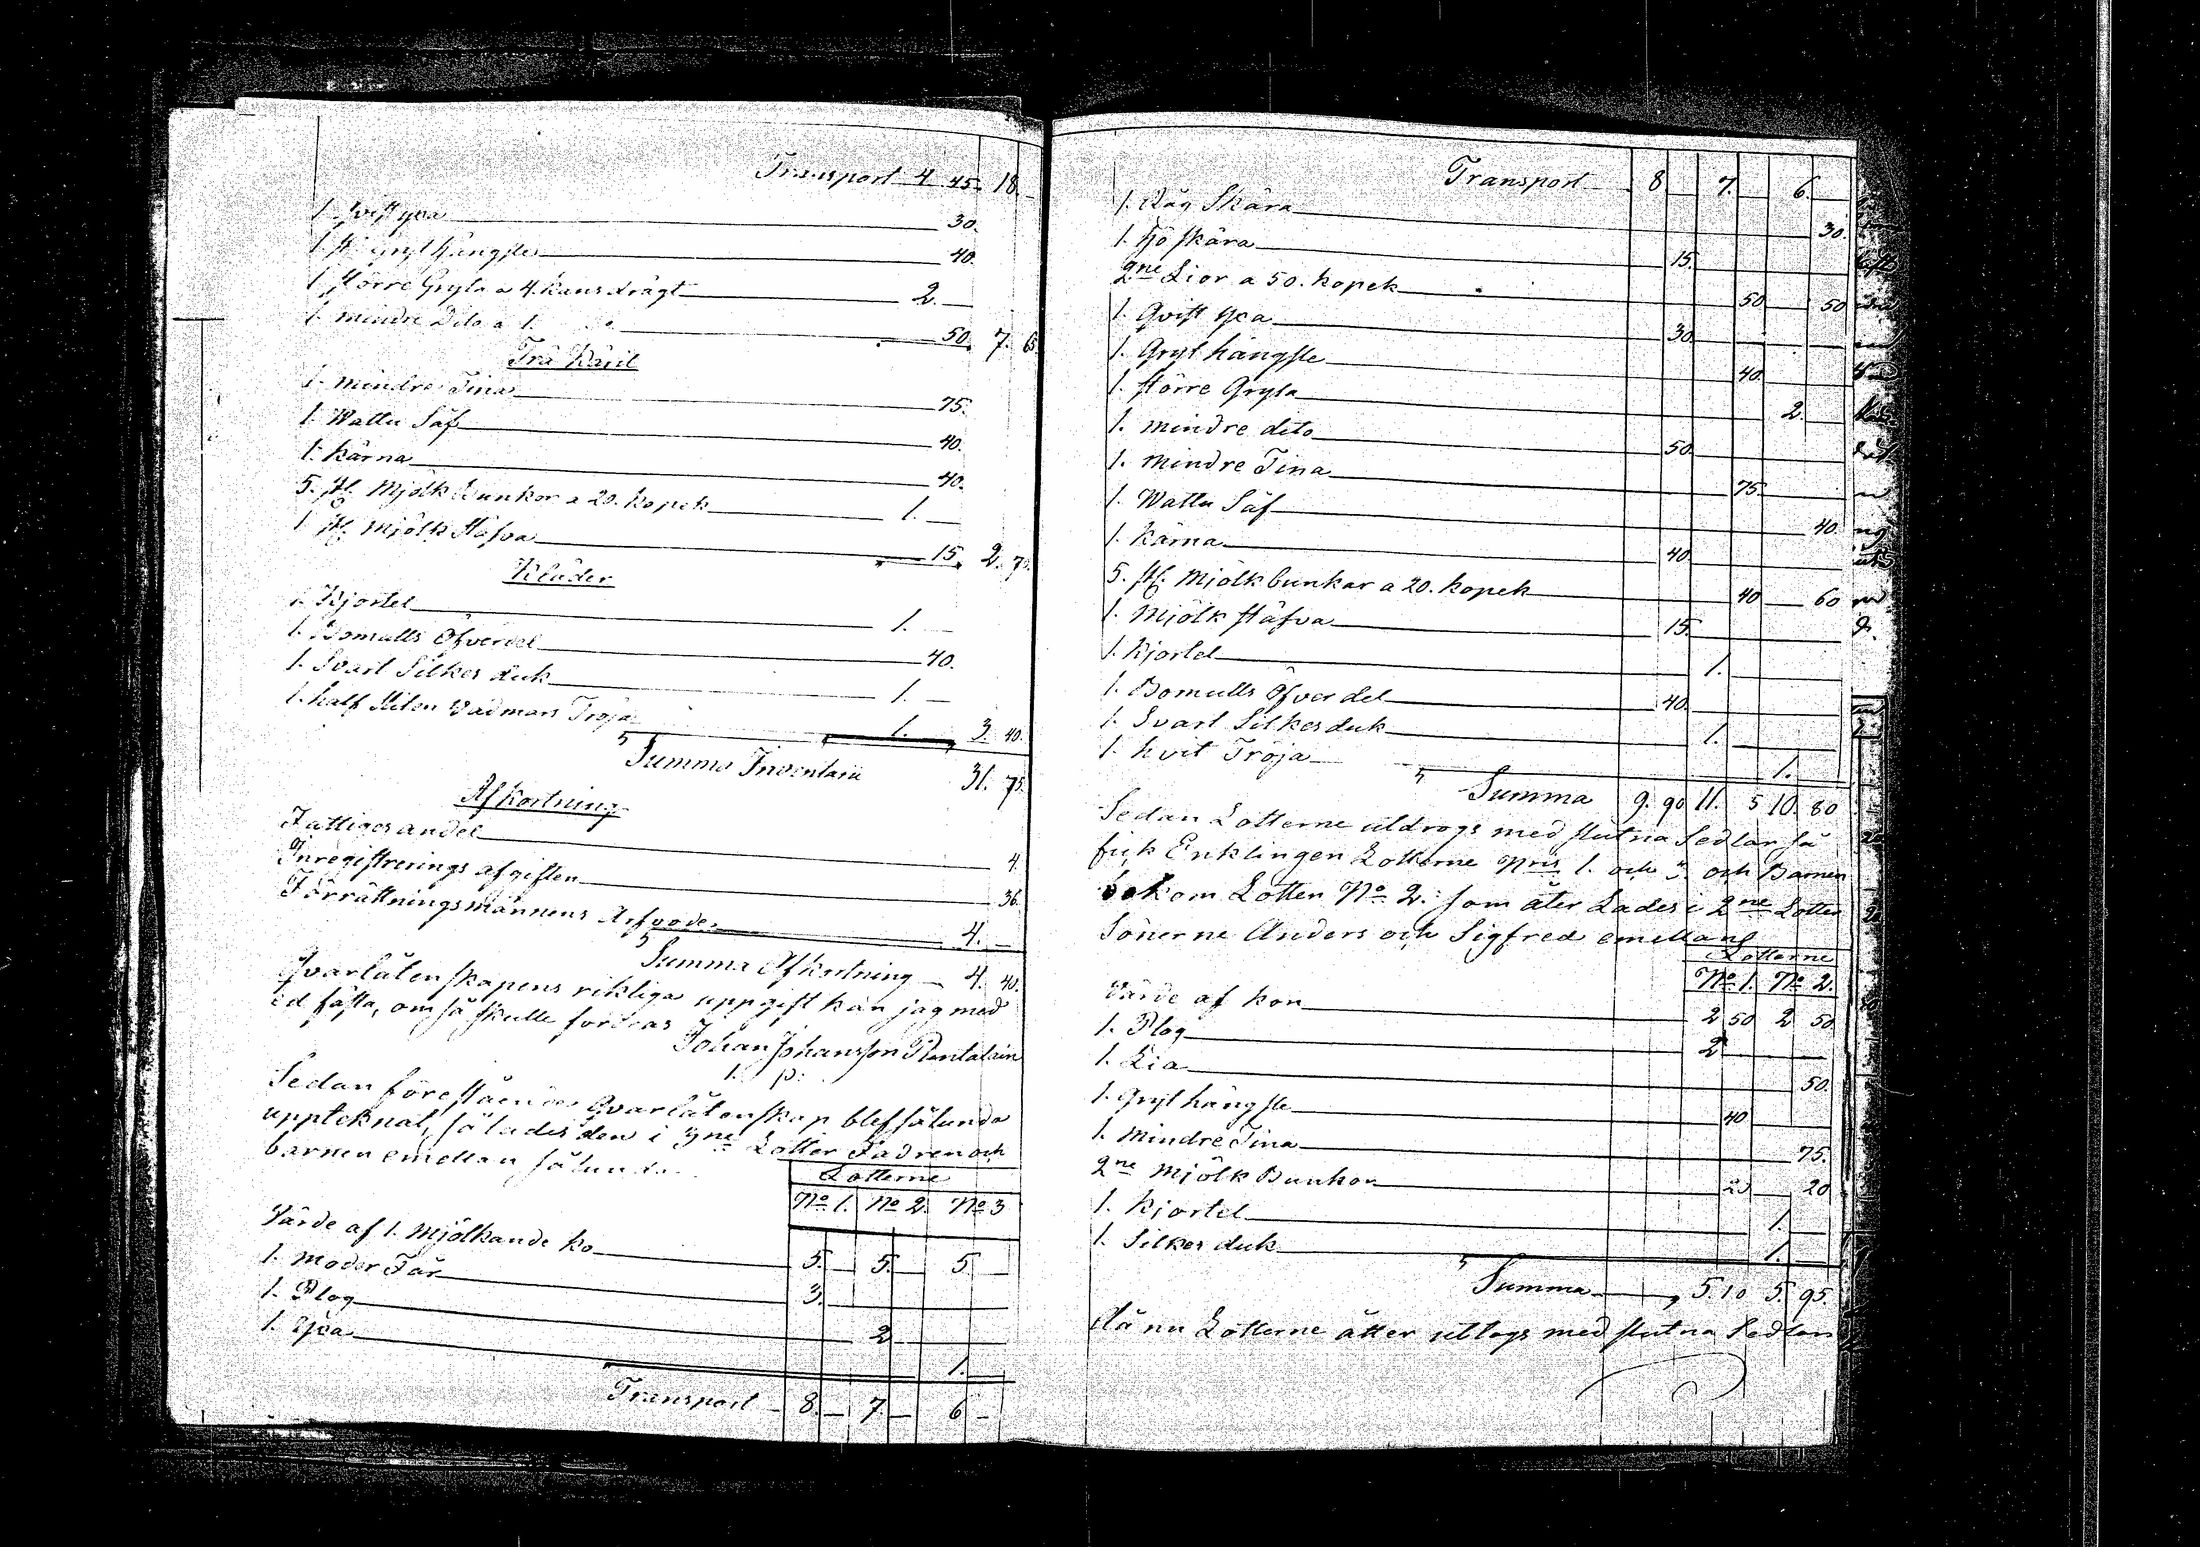 Transport 4 45. 18. —
1. qvist yxa 30.
1. st. Gryt hängsle 40.
1. större Gryta a 4. kans drägt 2. —
1. mindre Dito a 1. Do 50. 7. 65
Trä Käril
1. mindre Tina 75.
1. Wattu Såf 40.
1. Kärna 40.
5. st. Mjölk Bunkor a 20. kopek 1. —
1. st. Mjölk Stäfva 15. 2. 70.
Kläder
1. Kjortel 1. —
1. Bomulls Öfverdel 40.
1. Svart Silkes duk 1. —
1. half sliten Vadmars Tröja 1. 3. 40.
Summa Inventarii 31. 75.
Afkortning
Fattiges andel 4.
Inregistrerings afgiften 36.
Förrättningsmännens Arfvode 4. —
Summa Afkortning — 4. 40.
Qvarlåtenskapens riktiga uppgift kan jag med
ed fästa, om så skulle fordras
Johan Johansson Pentalain
1. p:
Sedan förestående Qvarlåtenskap blef sålunda
uppteknat, så lades den i 3ne Lotter Fadren och
barnen emellan sålunda
Lotterne
No 1. No 2. No 3
Värde af 1. Mjölkande ko 5. — 5. — 5 —
1. Moder Får 3. —
1. Plog 2
1. Yxa 1.
Transport — 8. — 7. — 6 —
Transport 8 7. 6.
1. Råg Skära 30.
1. Hö skära 15.
2ne Lior a 50. kopek 50 50
1. Qvist yxa 30
1. Gryt hängsle 40.
1. större Gryta 2.
1. mindre dito 50.
1. mindre Tina 75.
1. Wattu Såf 40.
1. Kärna 40.
5. st. Mjölkbunkar a 20. kopek 40 — 60
1. Mjölk stäfva 15.
1. Kjortel 1.
1. Bomulls Öfverdel 40.
1. Svart Silkesduk 1.
1. hvit Tröja 1.
Summa 9. 90 11. 5 10. 80
Sedan Lotterne utdrogs med slutna Sedlar så
fick Enklingen Lotterne Nris 1. och 3. och Barnen
bekom Lotten No 2. som åter Lades i 2ne Lotter
Sönerne Anders och Sigfred emellan
Lotterne
No 1. No 2.
Värde af kon 2 50 2 50
1. Plog 2
1. Lia 50.
1. Gryt hängsle 40
1. Mindre Tina 75.
2ne Mjölk Bunkor 20 20
1. Kjortel 1.
1. Silkes duk 1.
Summa 5. 10 5. 95.
då nu Lotterne åtter uttogs med slutna Sedlar